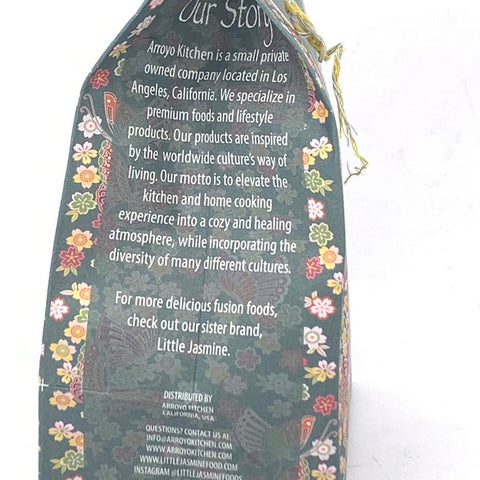 Our Story
Arroyo Kitchen is a small private
owned company located in Los
Angeles, California. We specialize in
premium foods and lifestyle
products. Our products are inspired
by the worldwide culture's way of
living. Our motto is to elevate the
kitchen and home cooking
experience into a cozy and healing
atmosphere, while incorporating the
diversity of many different cultures.
For more delicious fusion foods,
check out our sister brand,
Little Jasmine.
DISTRIBUTED BY
ARROYO KITCHEN
CALIFORNIA, USA
QUESTIONS? CONTACT US AT:
INFO@ARROYOKITCHEN.COM
WWW.ARROYOKITCHEN.COM
WWW.LITTLEJASMINEFOOD.COM
INSTAGRAM @LITTLEJASMINEFOODS